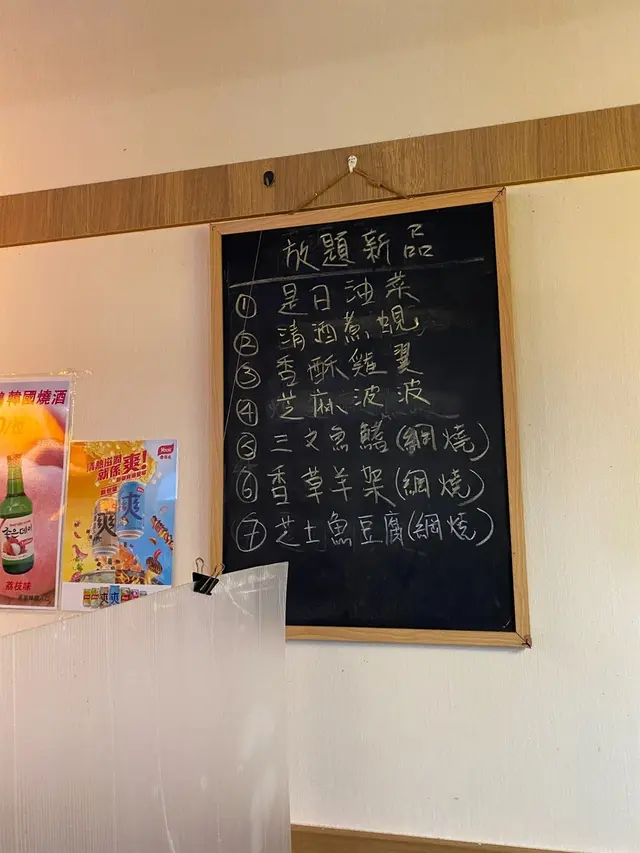 放題新品
① 是日油菜
② 清酒煮蜆
③ 香酥雞翼
④ 芝麻波波
⑤ 三文魚鰭(網燒)
⑥ 香草羊架(網燒)
⑦ 芝士魚豆腐(網燒)
韓國燒酒
좋은데이
荔枝味
就係爽!
爽
爽